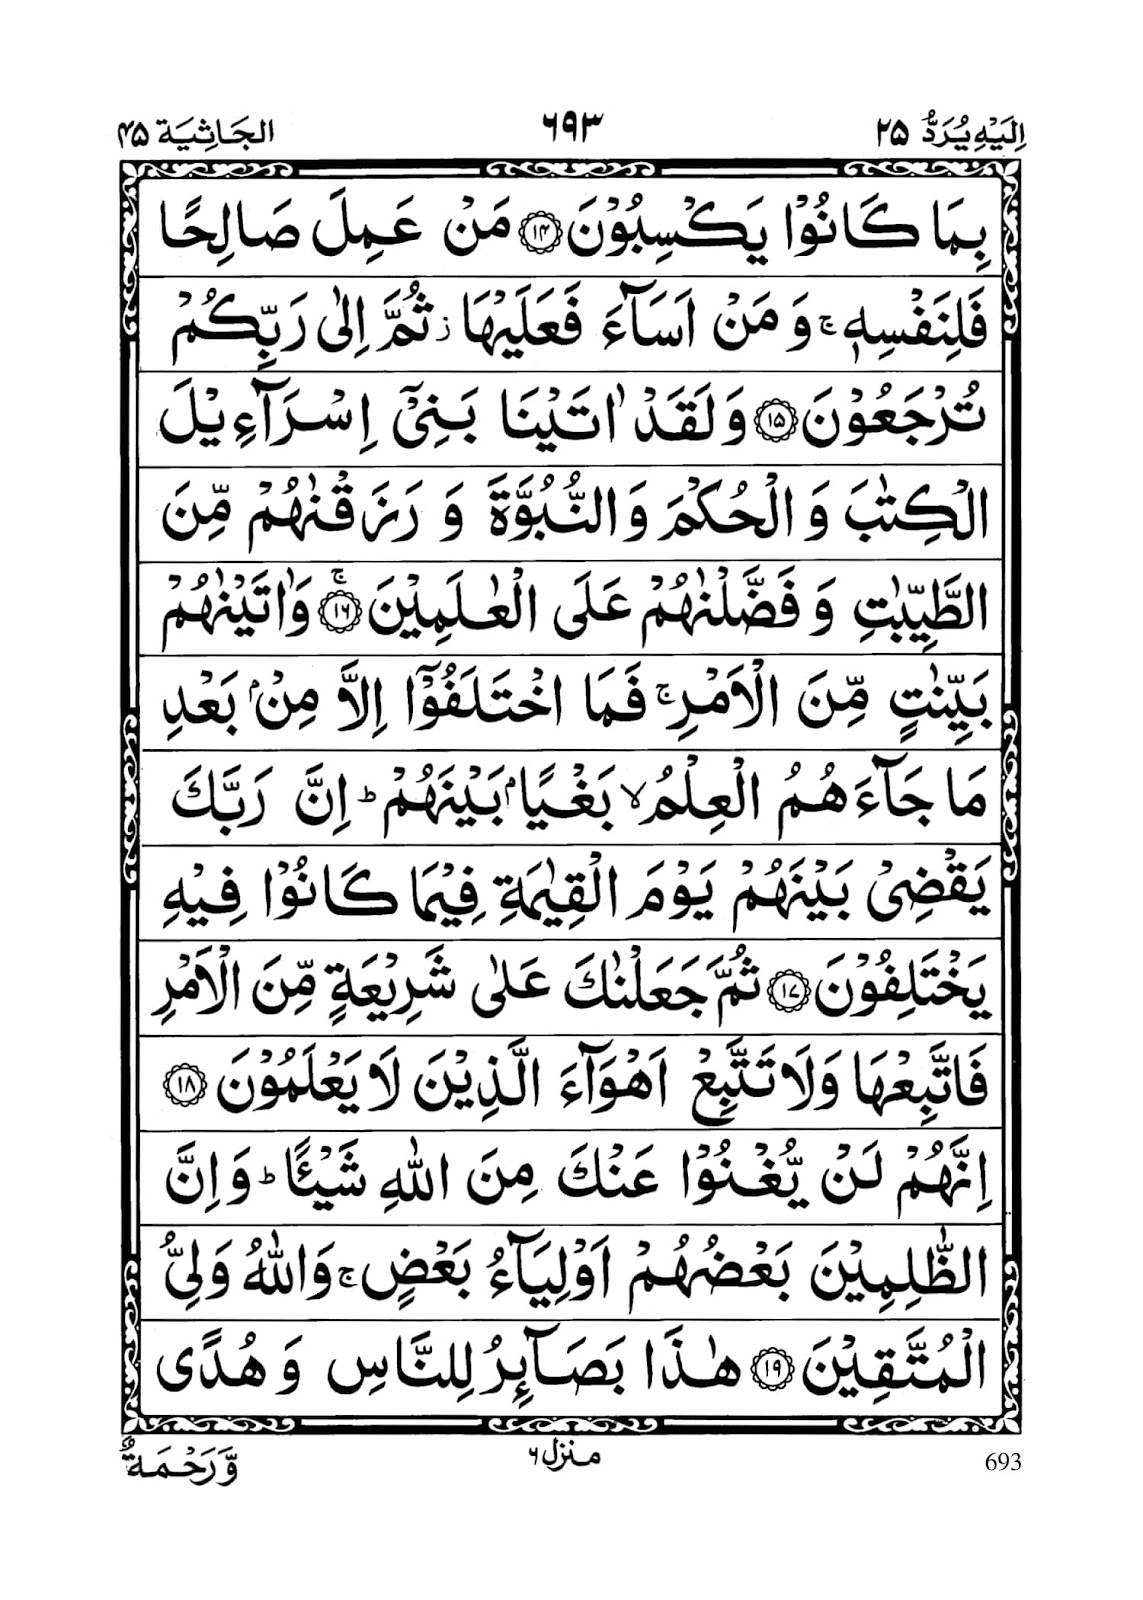 اِلَيْهِ يُرَدُّ ۲۵ ٦٩٣ الجَاثِيَة ۴۵
بِمَا كَانُوْا يَكْسِبُوْنَ ۱۴ مَنْ عَمِلَ صَالِحًا
فَلِنَفْسِهٖ ۚ وَ مَنْ اَسَآءَ فَعَلَيْهَا ز ثُمَّ اِلٰى رَبِّكُمْ
تُرْجَعُوْنَ ۱۵ وَ لَقَدْ اٰتَيْنَا بَنِيْۤ اِسْرَآءِيْلَ
الْكِتٰبَ وَ الْحُكْمَ وَ النُّبُوَّةَ وَ رَزَقْنٰهُمْ مِّنَ
الطَّيِّبٰتِ وَ فَضَّلْنٰهُمْ عَلَى الْعٰلَمِيْنَ ۚ ۱۶ وَ اٰتَيْنٰهُمْ
بَيِّنٰتٍ مِّنَ الْاَمْرِ ۚ فَمَا اخْتَلَفُوْۤا اِلَّا مِنْۢ بَعْدِ
مَا جَآءَهُمُ الْعِلْمُ ۙ بَغْيًۢا بَيْنَهُمْ ؕ اِنَّ رَبَّكَ
يَقْضِيْ بَيْنَهُمْ يَوْمَ الْقِيٰمَةِ فِيْمَا كَانُوْا فِيْهِ
يَخْتَلِفُوْنَ ۱۷ ثُمَّ جَعَلْنٰكَ عَلٰى شَرِيْعَةٍ مِّنَ الْاَمْرِ
فَاتَّبِعْهَا وَلَا تَتَّبِعْ اَهْوَآءَ الَّذِيْنَ لَا يَعْلَمُوْنَ ۱۸
اِنَّهُمْ لَنْ يُّغْنُوْا عَنْكَ مِنَ اللّٰهِ شَيْـًٔا ؕ وَ اِنَّ
الظّٰلِمِيْنَ بَعْضُهُمْ اَوْلِيَآءُ بَعْضٍ ۚ وَاللّٰهُ وَلِيُّ
الْمُتَّقِيْنَ ۱۹ هٰذَا بَصَآئِرُ لِلنَّاسِ وَ هُدًى
وَّ رَحْمَةٌ منزل ٦ 693